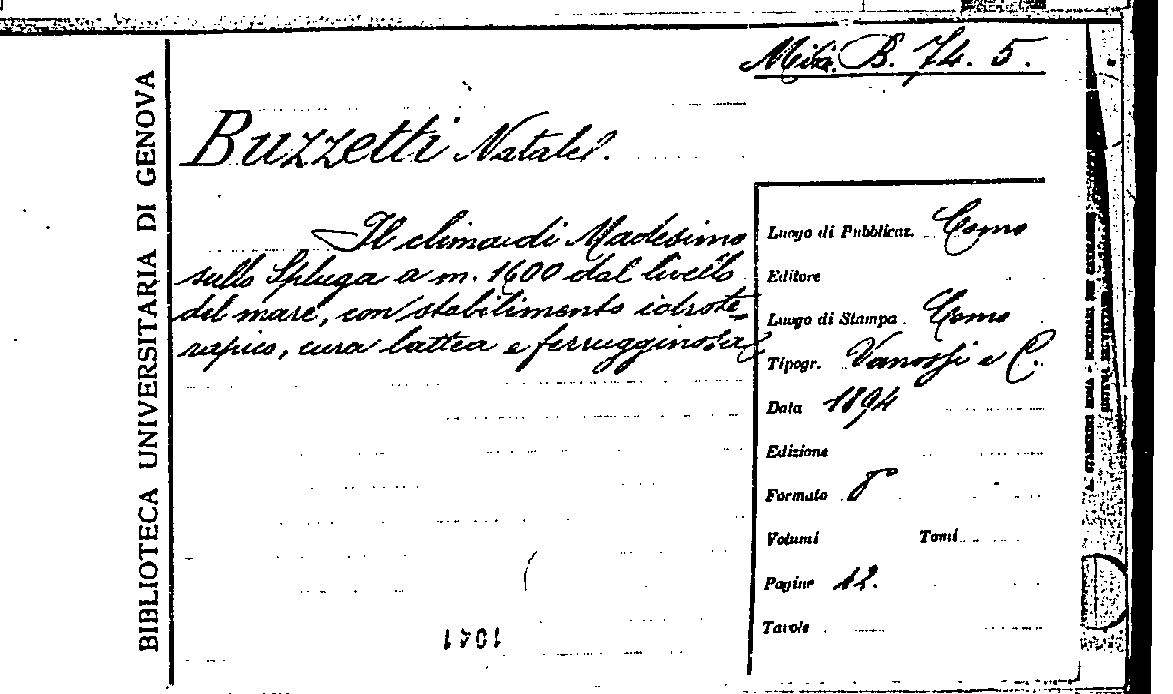 B. 74. 5.
BIBLIOTECA UNIVERSITARIA DI GENOVA
Buzzetti Natale.
Il clima di Madesimo
sullo Spluga a m. 1600 dal livello
del mare, con stabilimento idrote-
rapico, cura lattea e ferrugginosa
Luogo di Pubblicaz. Como
Editore
Luogo di Stampa Como
Tipogr. Vanossi e C.
Data 1894
Edizione
Formato 8°
Volumi Tomi
Pagine 12.
Tavole